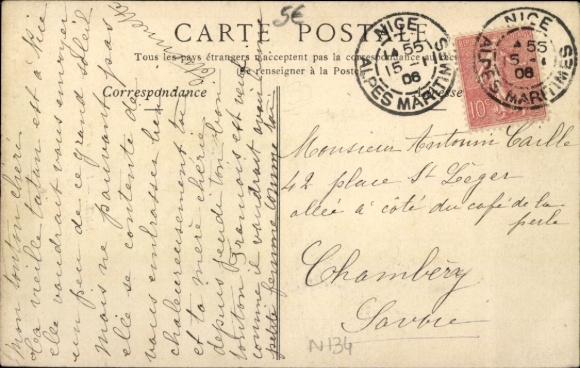 5€
CARTE POSTALE
Tous les pays étrangers n'acceptent pas la correspondance au
Se renseigner à la Poste
Correspondance
Adresse
NICE
55
15 - 1
06
ALPES MARITIMES
NICE
55
15 - 1
06
ALPES MARITIMES
10c
Mon tonton chéri
La vieille tatan est à Nice
elle voudrait vous envoyer
un peu de ce grand soleil
mais ne pouvant pas
elle se contente de
vous embrasser bien
chaleureusement toi
et ta mère chérie
depuis
tonton Français est veuf
comme il voudrait avoir une
petite femme comme toi
Monsieur Antonin Caille
42 place St Léger
allée à côté du café de la
perle
Chambéry
Savoie
N134